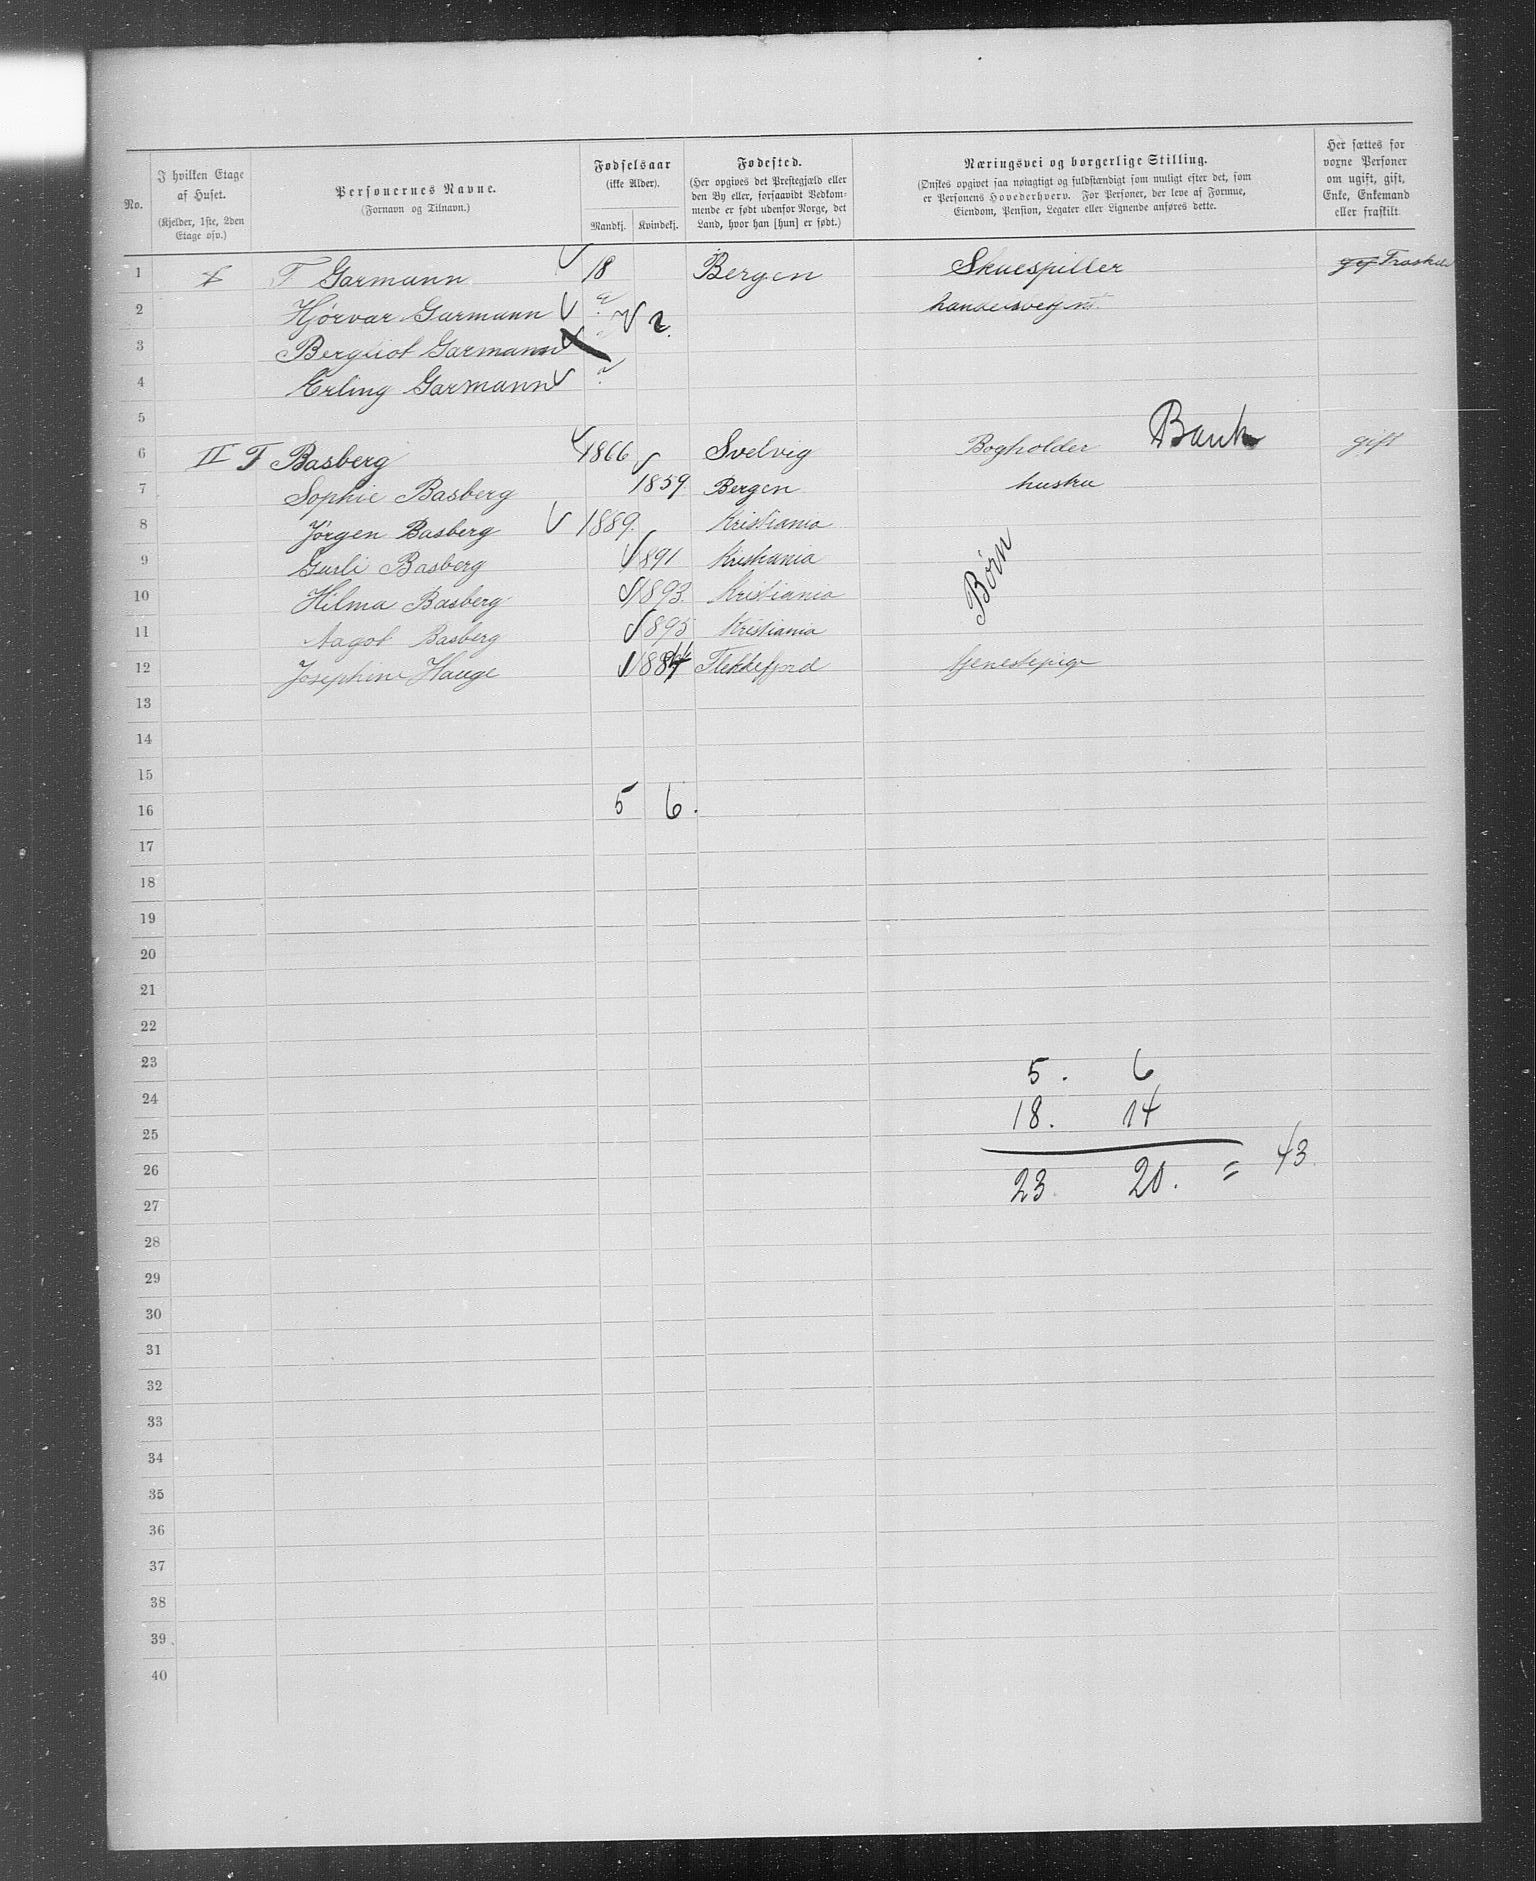 No.
I hvilken Etage af Huset.
(Kjelder, 1ste, 2den Etage osv.)
Personernes Navne.
(Fornavn og Tilnavn.)
Fødselsaar
(ikke Alder).
Mandkj. Kvindekj.
Fødested.
(Her opgives det Prestegjæld eller
den By eller, forsaavidt Vedkom-
mende er født udenfor Norge, det
Land, hvor han [hun] er født.)
Næringsvei og borgerlige Stilling.
(Ønskes opgivet saa nøiagtigt og fuldstændigt som muligt efter det, som
er Personens Hovederhverv. For Personer, der leve af Formue,
Eiendom, Pension, Legater eller Lignende anføres dette.
Her sættes for
voxne Personer
om ugift, gift,
Enke, Enkemand
eller fraskilt.
1 F Garmann 18 Bergen Skuespiller
2 Hjørvar Garmann ?
3 Bergliot Garmann ?
4 Erling Garmann ?
5
6 II F Basberg 1866 Svelvig Bogholder Bank gift
7 Sophie Basberg 1859 Bergen hustru
8 Jørgen Basberg 1889 Kristiania
9 Gusli Basberg 1891 Kristiania Børn
10 Hilma Basberg 1893 Kristiania
11 Aagot Basberg 1895 Kristiania
12 Josephine Hauge Flekkefjord tjenestepige
13
14
15
16 5 6.
17
18
19
20
21
22
23 5. 6
24 18. 14
25
26 23. 20. = 43.
27
28
29
30
31
32
33
34
35
36
37
38
39
40